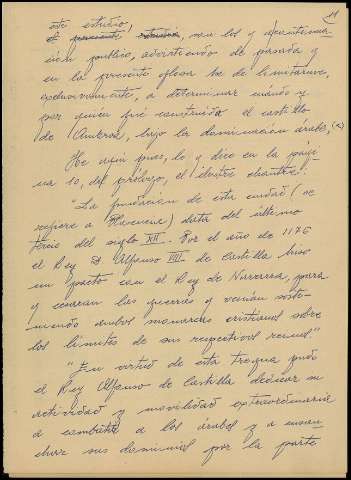 11
este estudio,
son los y
ción público, advirtiendo de pasada y
en la presente he de limitarme,
exclusivamente, a determinar cuándo y
por quien fué construido el castillo
de bajo la dominación árabe,
He aquí pues, lo y dice en la pági-
na 10, del prólogo, el ilustre chantre:
"La fundación de esta ciudad (se
refiere a ) data del último
tercio del siglo XII. Por el año de 1176
el Rey Dn Alfonso VIII de Castilla hizo
un pacto con el Rey de Navarra, para
y cesaran las guerras y venían soste-
niendo ambos monarcas cristianos sobre
los límites de sus respectivos reinos."
"En virtud de esta tregua pudo
el Rey Alfonso de Castilla dedicar su
actividad y movilidad extraordinaria
a combatir a los árabes y a ensan-
char sus dominios por la parte